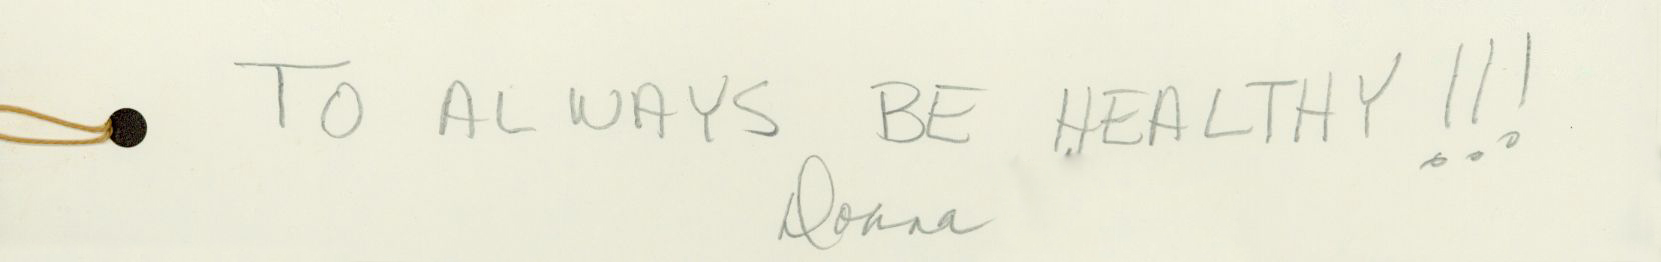 TO ALWAYS BE HEALTHY!!!
Donna